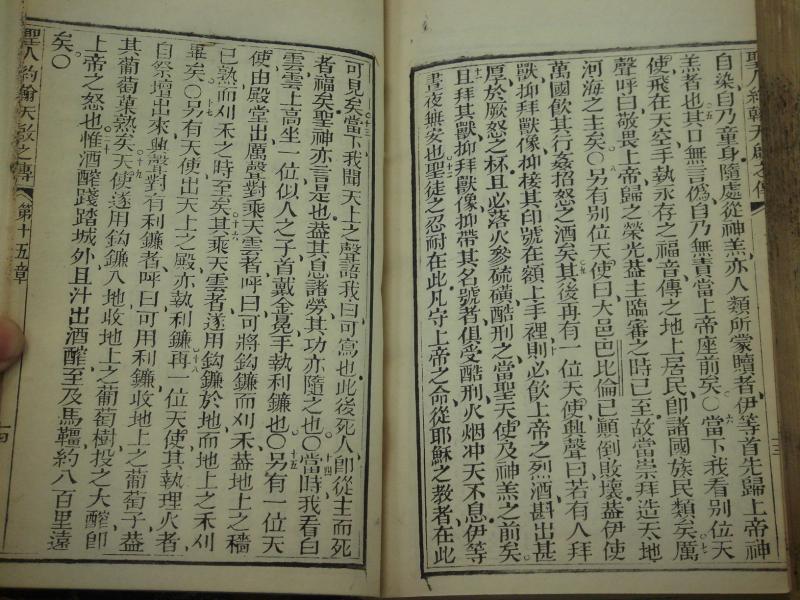 聖人約翰天啟之傳
自染自乃童身隨處從神羔亦人類所蒙贖者伊等首先歸上帝神
羔者也五其口無言僞自乃無責當上帝座前矣〇六當下我看別位天
使飛在天空手執永存之福音傳之地上居民卽諸國族民類矣七厲
聲呼曰敬畏上帝歸之榮光葢主臨審之時已至故當崇拜造天地
河海之主矣〇八另有別位天使曰大邑巴比倫已顚倒敗壞葢伊使
萬國飲其行姦招怒之酒矣九其後再有一位天使興聲曰若有人拜
獸抑拜獸像抑接其印號在額上手裡十則必飲上帝之烈酒斟出甚
厚於厥怒之杯且必落火參硫磺酷刑之當聖天使及神羔之前矣
十一且拜其獸抑拜獸像抑帶其名號者俱受酷刑火烟冲天不息伊等
晝夜無安也十二聖徒之忍耐在此凡守上帝之命從耶穌之教者在此
十三
可見矣十三當下我聞天上之聲語我曰可寫也此後死人卽從主而死
者福矣聖神亦言是也葢其息諸勞其功亦隨之也〇十四當時我看白
雲雲上高坐一位似人之子首戴金冕手執利鐮也〇十五另有一位天
使由殿堂出厲聲對乘天雲者呼曰可將鈎鐮而刈禾葢地上之穡
已熟而刈禾之時至矣十六其乘天雲者遂用鈎鐮於地而地上之禾刈
畢矣〇十七另有天使出天上之殿亦執利鐮十八再一位天使其執理火者
自祭壇出來興聲對有利鐮者呼曰可用利鐮收地上之葡萄子葢
其葡萄菓熟矣十九天使遂用鈎鐮入地收地上之葡萄樹投之大醡卽
上帝之怒也二十惟酒醡踐踏城外且汁出酒醡至及馬韁約八百里遠
矣〇
聖人約翰天啟之傳 第十五章
十四